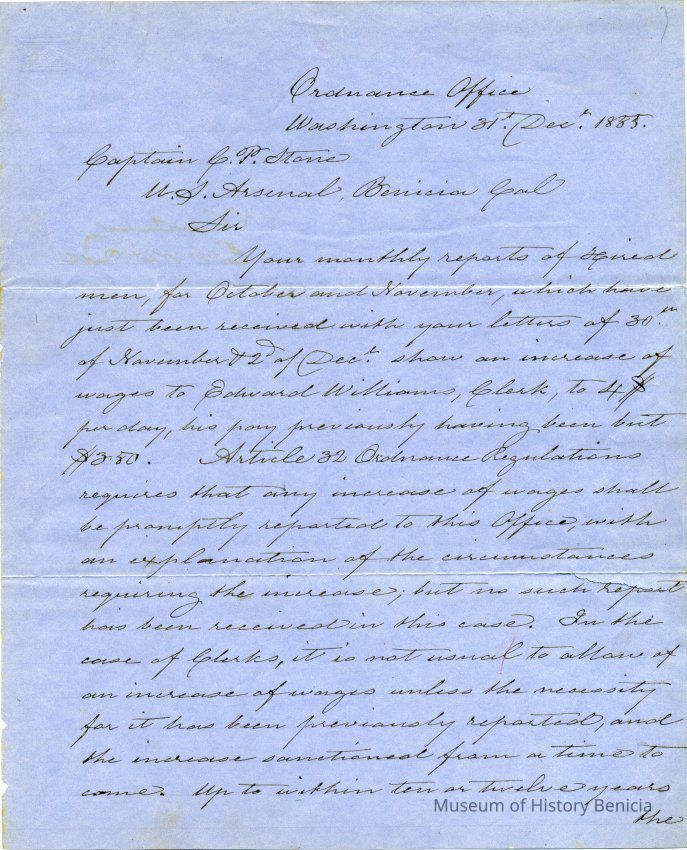 Ordnance Office
Washington 31st. Decr. 1855.
Captain C. P. Stone
U. S. Arsenal, Benicia Cal
Sir
Your monthly reports of Hired
men, for October and November, which have
just been received with your letters of 30.th
of November & 2d of Decr. show an increase of
wages to Edward Williams, Clerk, to 4 $
per day, his pay previously having been but
$3.50. Article 32 Ordnance Regulations
requires that any increase of wages shall
be promptly reported to this Office, with
an explanation of the circumstances
requiring the increase; but no such report
has been received in this case. In the
case of Clerks, it is not usual to allow of
an increase of wages unless the necessity
for it has been previously reported, and
the increase sanctioned from a time to
come. Up to within ten or twelve years
the
Museum of History Benicia